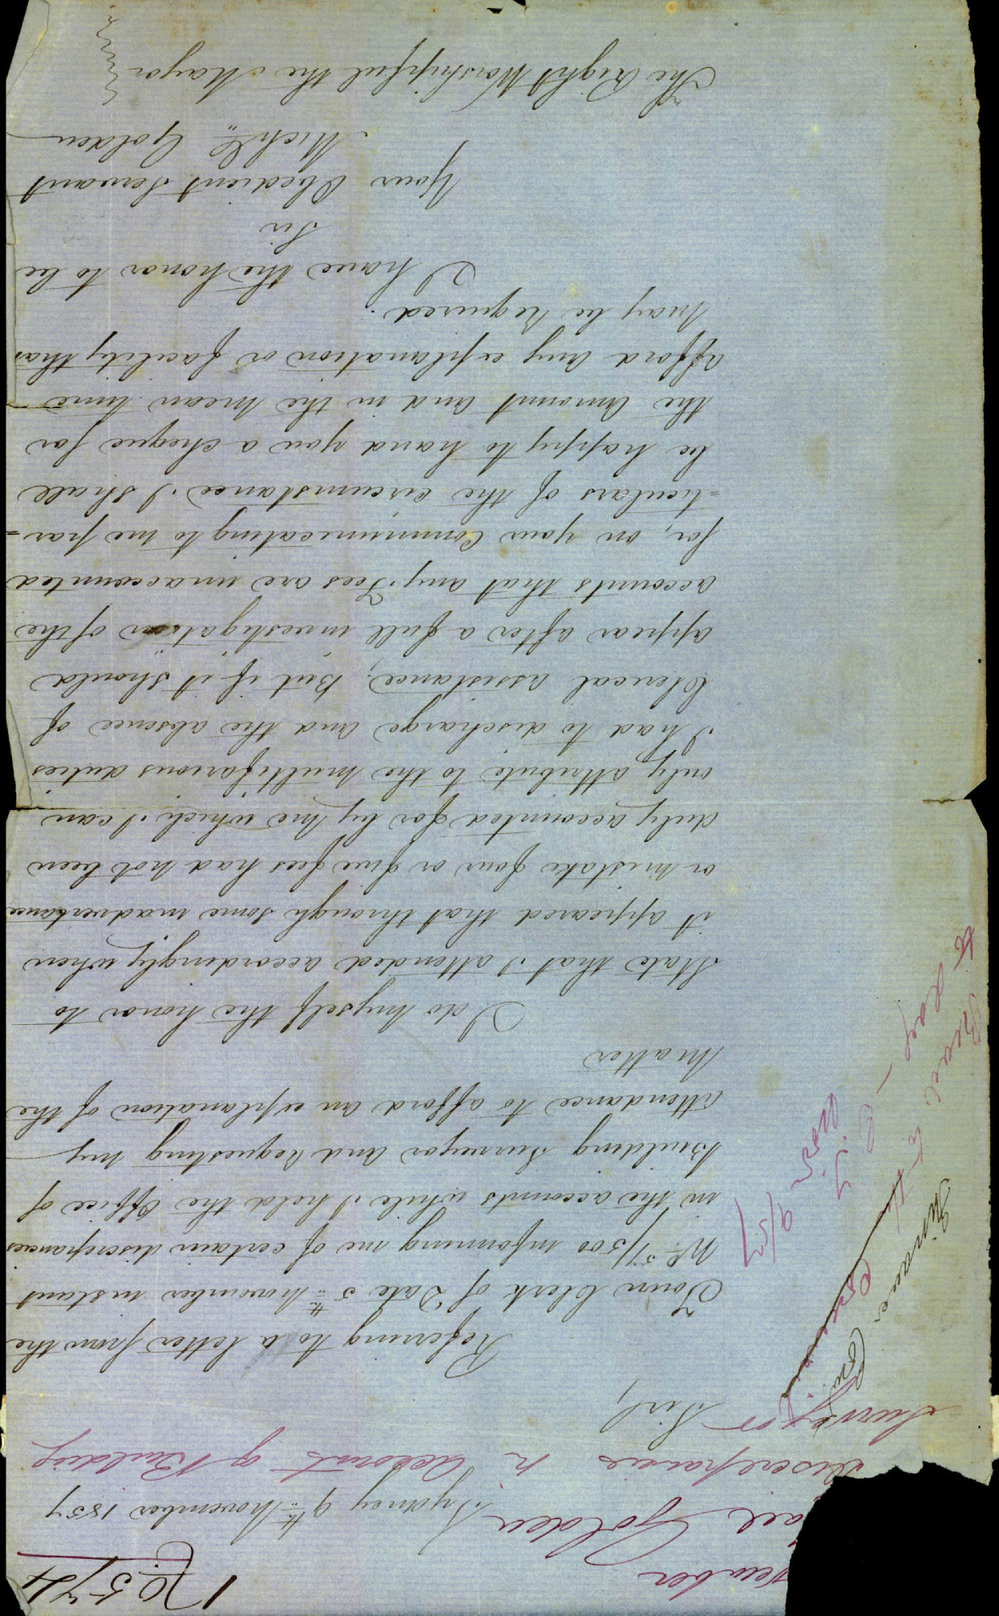 No. 574
Sydney 9th November 1857
Golden
discrepancies in Account of Building
Surveyor
Sir,
Referring to a letter from the
Town Clerk of Date 5th November instant
No 57/500 informing me of certain discrepancies
in the accounts while I held the Office of
Building Surveyor and Requesting my
attendance to afford an explanation of the
Matter
I do myself the honor to
State that I attended accordingly when
it appeared that through some inadvertance
or mistake four or five fees had not been
duly accounted for by me which I can
only attribute to the multifarious duties
I had to discharge and the absence of
Clerical assistance; But if it should
appear after a full investigation of the
accounts that any Fees are unaccounted
for, on your Communicating to me par=
=ticulars of the circumstance I shall
be happy to hand you a cheque for
the Amount and in the mean time
afford any explanation or facility that
May be Required.
I have the honor to be
Sir
Your Obedient Servant
Michl Golden
The Right Worshipful the Mayor
Finance Com
9/57